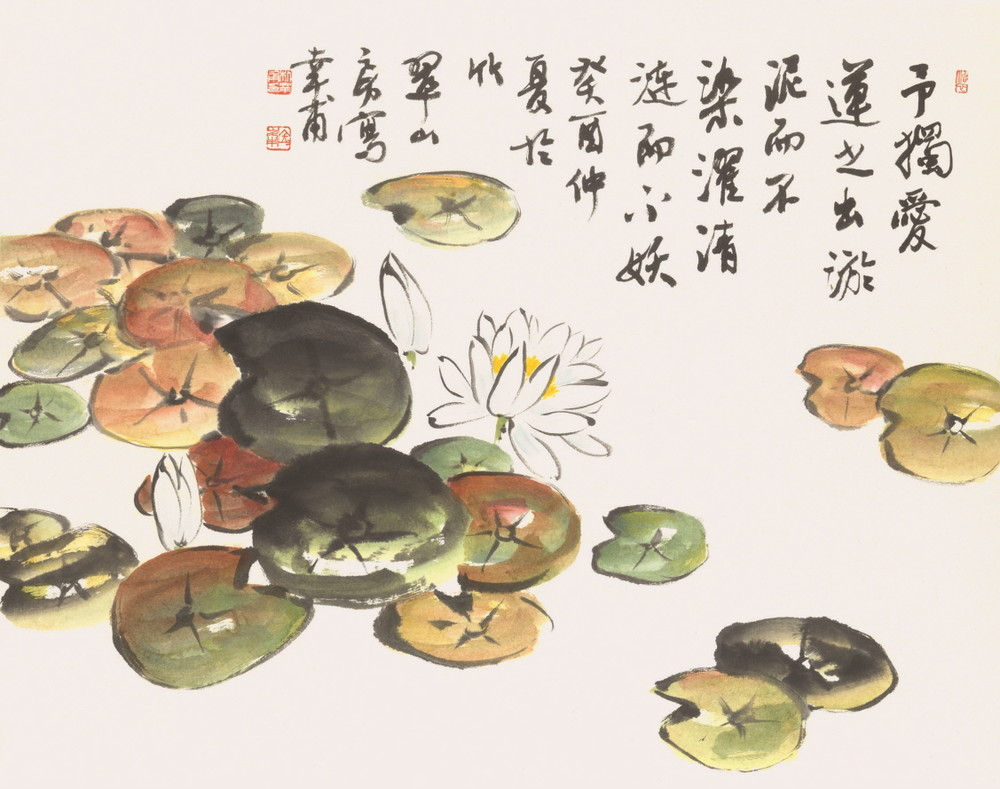 予獨愛
蓮之出淤
泥而不
染濯清
漣而不妖
癸酉仲
夏於
竹
翠山
房寫
幸甫